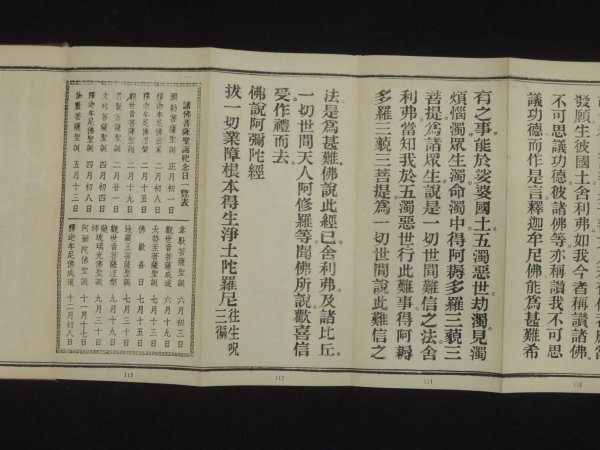 發願生彼國土舍利弗如我今者稱讚諸佛。
不可思議功德彼諸佛等亦稱讚我不可思
議功德而作是言釋迦牟尼佛能為甚難希
有之事能於娑婆國土五濁惡世劫濁見濁
煩惱濁眾生濁命濁中得阿耨多羅三藐三
菩提為諸眾生說是一切世間難信之法舍
利弗當知我於五濁惡世行此難事得阿耨
多羅三藐三菩提為一切世間說此難信之
法是為甚難佛說此經已舍利弗及諸比丘。
一切世間天人阿修羅等聞佛所說歡喜信
受作禮而去。
佛說阿彌陀經
拔一切業障根本得生淨土陀羅尼 往生呪三徧
諸佛菩薩聖誕紀念日一覽表
彌勒菩薩聖誕 正月初一日
釋迦牟尼佛出家 二月初八日
釋迦牟尼佛涅槃 二月十五日
觀世音菩薩聖誕 二月十九日
普賢菩薩聖誕 二月廿一日
文殊菩薩聖誕 四月初四日
釋迦牟尼佛聖誕 四月初八日
伽藍菩薩聖誕 五月十三日
韋馱菩薩聖誕 六月初三日
觀世音菩薩成道 六月十九日
大勢至菩薩聖誕 七月十三日
佛歡喜日 七月十五日
地藏王菩薩聖誕 七月三十日
觀世音菩薩涅槃 九月十九日
藥師琉璃光佛聖誕 九月三十日
阿彌陀佛聖誕 十一月十七日
釋迦牟尼佛成道 十二月初八日
110
111
112